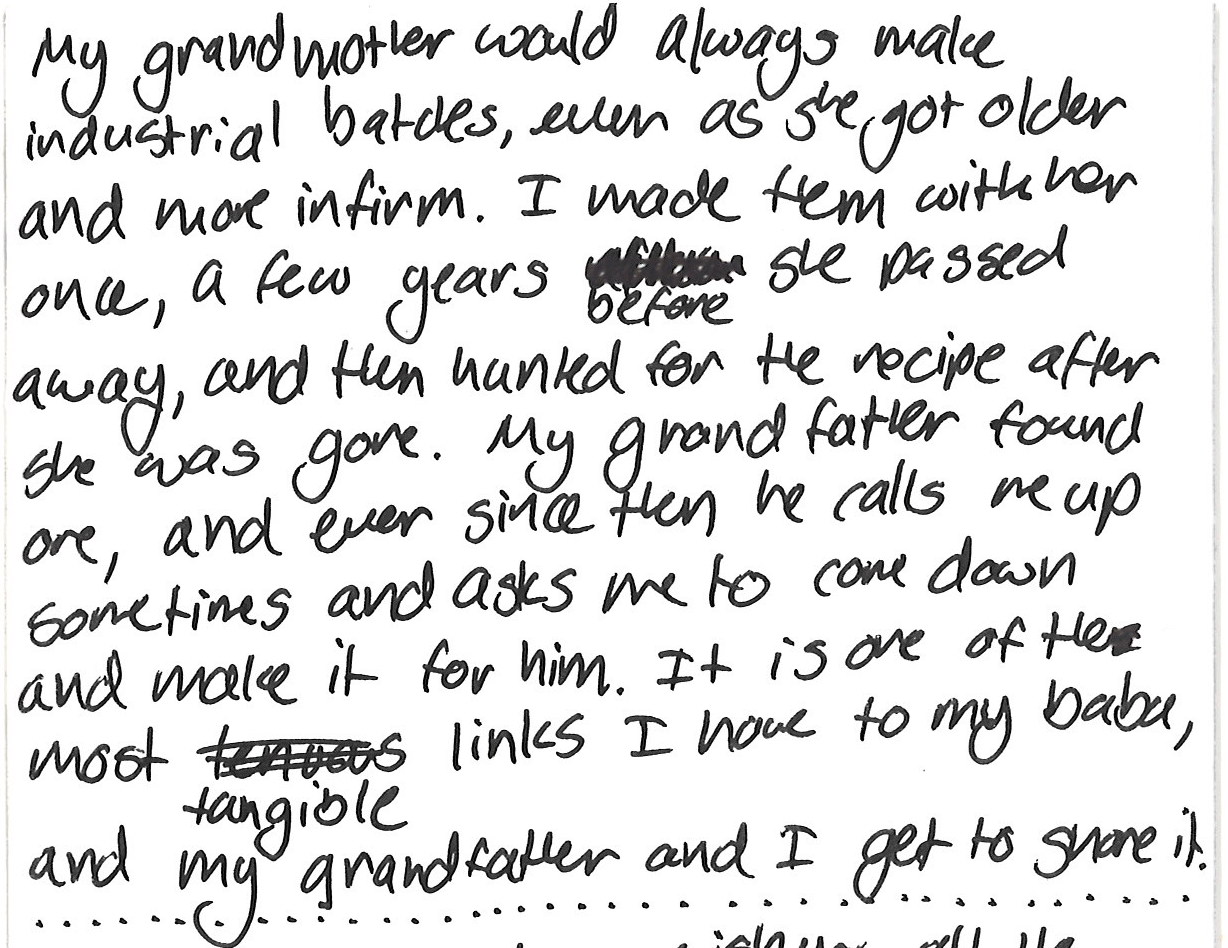 My grandmother would always make
industrial batches, even as she got older
and more infirm. I made them with her
once, a few years she passed
before
away, and then hunted for the recipe after
she was gone. My grandfather found
one, and ever since then he calls me up
sometimes and asks me to come down
and make it for him. It is one of the
most tenuous links I have to my baba,
tangible
and my grandfather and I get to share it.